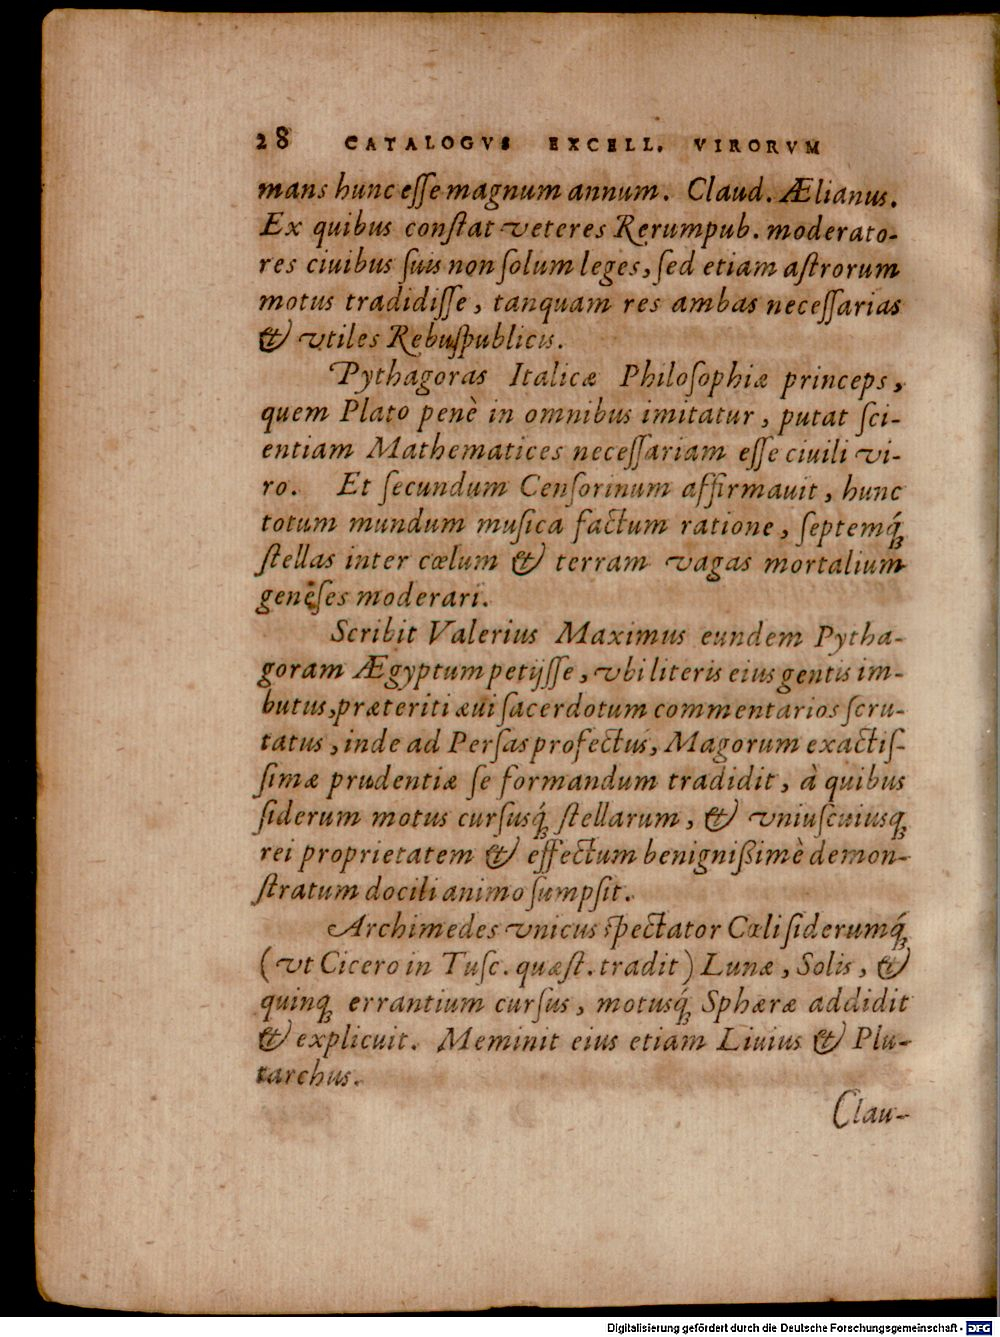 28 CATALOGVS EXCELL. VIRORVM
mans hunc eſſe magnum annum. Claud. Ælianus.
Ex quibus conſtat veteres Rerumpub. moderato-
res ciuibus ſuis non ſolum leges, ſed etiam aſtrorum
motus tradidiſſe, tanquam res ambas neceſſarias
& vtiles Rebuſpublicis.
Pythagoras Italicæ Philoſophiæ princeps,
quem Plato penè in omnibus imitatur, putat ſci-
entiam Mathematices neceſſariam eſſe ciuili vi-
ro. Et ſecundum Cenſorinum affirmauit, hunc
totum mundum muſica factum ratione, ſeptemq́ꝫ
ſtellas inter cœlum & terram vagas mortalium
geneſes moderari.
Scribit Valerius Maximus eundem Pytha-
goram Ægyptum petijſſe, vbi literis eius gentis im-
butus, præteriti æui ſacerdotum commentarios ſcru-
tatus, inde ad Perſas profectus, Magorum exactiſ-
ſimæ prudentiæ ſe formandum tradidit, à quibus
ſiderum motus curſusq́ꝫ ſtellarum, & vniuſcuiusqꝫ
rei proprietatem & effectum benignißimè demon-
ſtratum docili animo ſumpſit.
Archimedes vnicus ſpectator Cœli ſiderumq́ꝫ
(vt Cicero in Tuſc. quæſt. tradit) Lunæ, Solis, &
quinqꝫ errantium curſus, motusq́ꝫ Sphæræ addidit
& explicuit. Meminit eius etiam Liuius & Plu-
tarchus.
Clau-
Digitalisierung gefördert durch die Deutsche Forschungsgemeinschaft - DFG